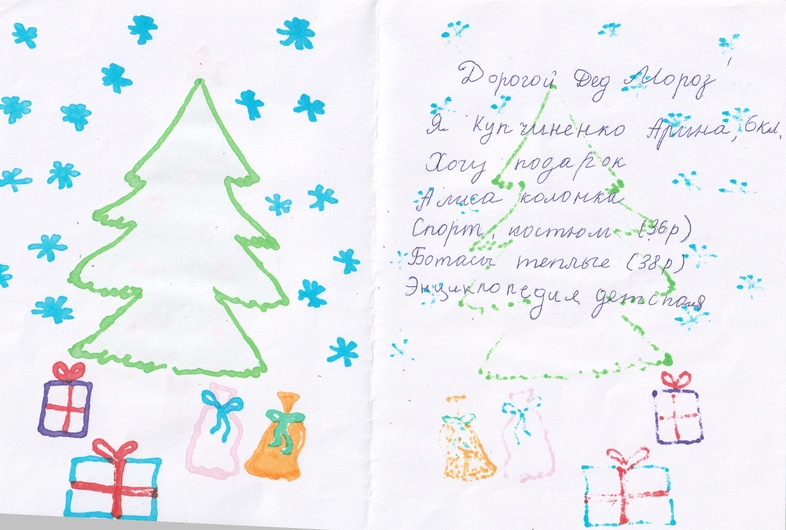 Дорогой Дед Мороз
Я Купчиненко Арина, 6кл.
Хочу подарок
Алиса колонки
Спорт. костюм (36р)
Ботасы теплые (38р)
Энциклопедия детская